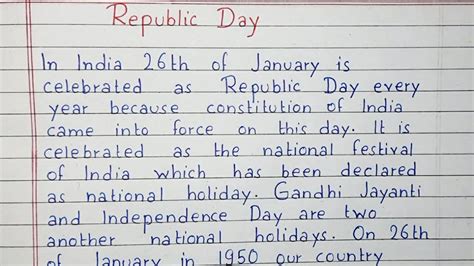 Republic Day
In India 26th of January is
celebrated as Republic Day every
year because constitution of India
came into force on this day. It is
celebrated as the national festival
of India which has been declared
as national holiday. Gandhi Jayanti
and Independence Day are two
another national holidays. On 26th
of January in 1950 our country